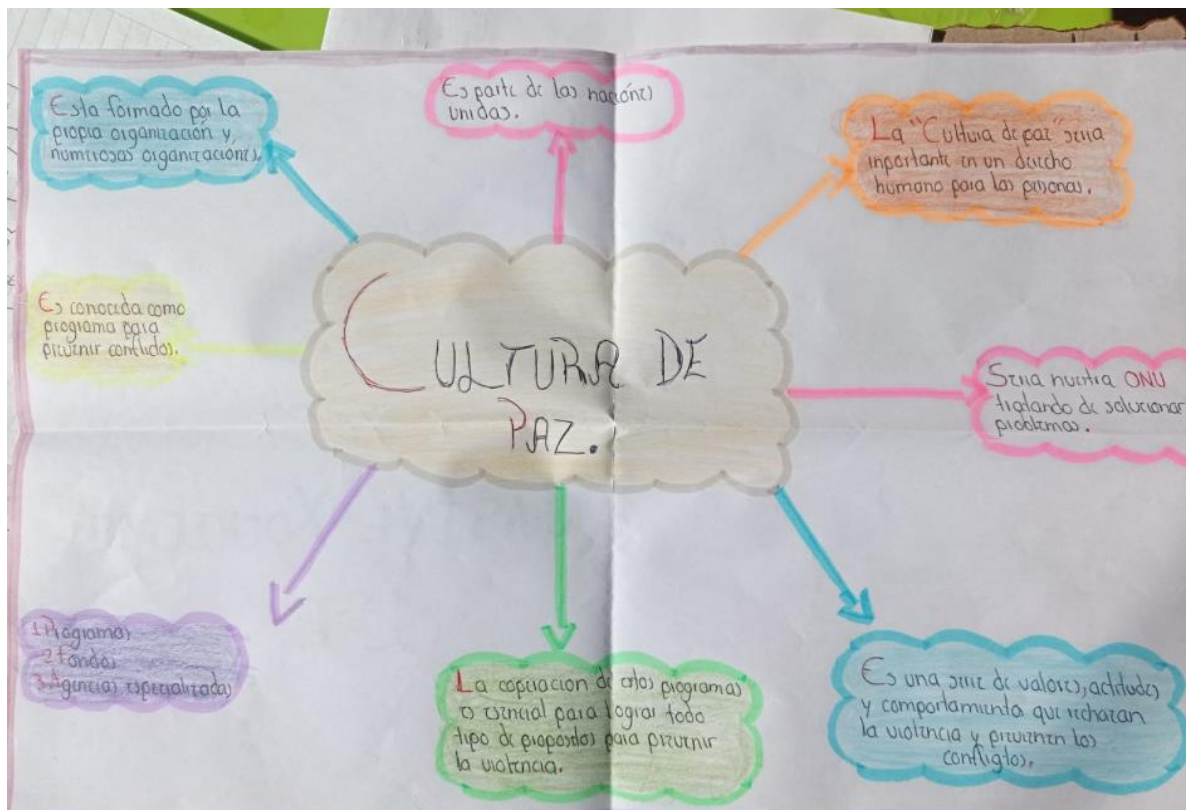 Esta formado por la
propia organización y
numerosas organizaciónes.
Es parte de las naciónes
unidas.
La "Cultura de paz" seria
inportante en un derecho
humano para las personas.
Es conocida como
programa para
prevenir conflidos.
CULTURA DE
PAZ.
Seria nuestra ONU
tratando de solucionar
problemas.
1 Programas
2 Fondos
3 Agencias especializadas
La coperacion de estos programas
o esencial para lograr todo
tipo de propositos para prevenir
la violencia.
Es una serie de valores, actitudes
y comportamienta que rechazan
la violencia y previenen los
confligtos.